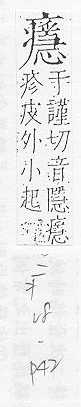 癮
于謹切音隱癮
疹皮外小起
18
p42